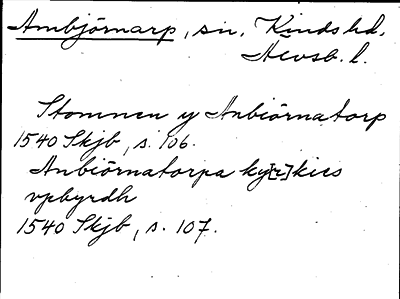 Ambjörnarp, sn, Kinds hd.
Älvsb. l.
Stomnen y Anbiörnatorp
1540 Skjb, s. 106.
Anbiörnatorpa ky[r]kies
vpbyrdh
1540 Skjb, s. 107.